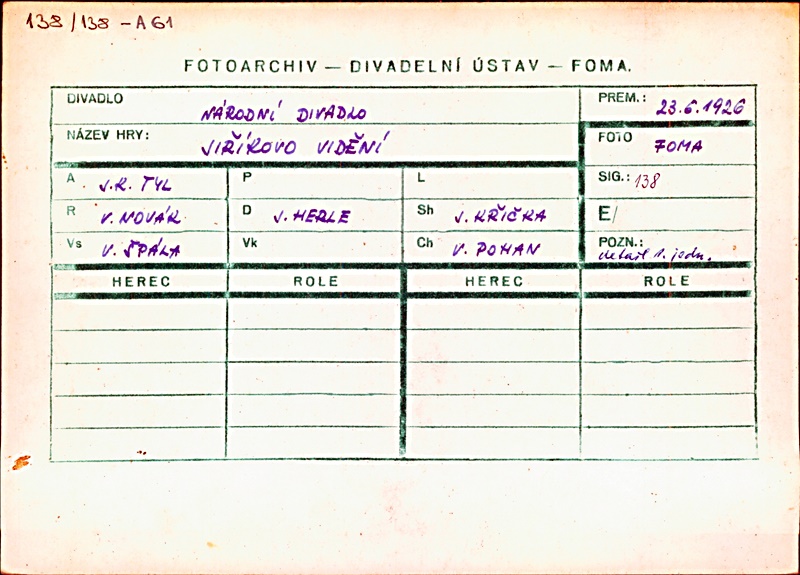 138/138 - A61
FOTOARCHIV — DIVADELNÍ ÚSTAV — FOMA.
DIVADLO NÁRODNÍ DIVADLO PREM.: 23.6.1926
NÁZEV HRY: JIŘÍKOVO VIDĚNÍ FOTO FOMA
A J.K. TYL P L SIG.: 138
R V. NOVÁK D J. HERLE Sh J. KŘIČKA E/
Vs V. ŠPÁLA Vk Ch V. POHAN POZN.: detail 1. jedn.
HEREC ROLE HEREC ROLE